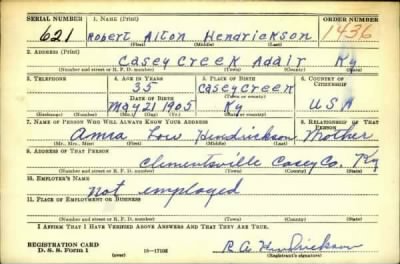 SERIAL NUMBER 1. NAME (Print) ORDER NUMBER
621 Robert Alton Hendrickson 1436
(First) (Middle) (Last)
2. ADDRESS (Print)
Casey Creek Adair Ky
(Number and street or R. F. D. number) (Town) (County) (State)
3. TELEPHONE 4. AGE IN YEARS 5. PLACE OF BIRTH 6. COUNTRY OF CITIZENSHIP
35 Casey Creek
DATE OF BIRTH (Town or county)
May 21 1905 Ky U.S.A
(Exchange) (Number) (Mo.) (Day) (Yr.) (State or country)
7. NAME OF PERSON WHO WILL ALWAYS KNOW YOUR ADDRESS 8. RELATIONSHIP OF THAT PERSON
Low Hendrickson Mother
(Mr., Mrs., Miss) (First) (Middle) (Last)
9. ADDRESS OF THAT PERSON
Clementsville Casey Co. Ky
(Number and street or R. F. D. number) (Town) (County) (State)
10. EMPLOYER'S NAME
Not employed
11. PLACE OF EMPLOYMENT OR BUSINESS
(Number and street or R. F. D. number) (Town) (County) (State)
I AFFIRM THAT I HAVE VERIFIED ABOVE ANSWERS AND THAT THEY ARE TRUE.
REGISTRATION CARD
D. S. S. Form 1 16—17105 R A Hendrickson
(Registrant's signature)